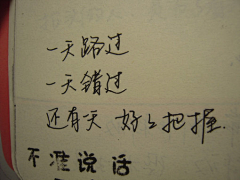 一天路过
一天错过
还有天 好好把握.
不准说话